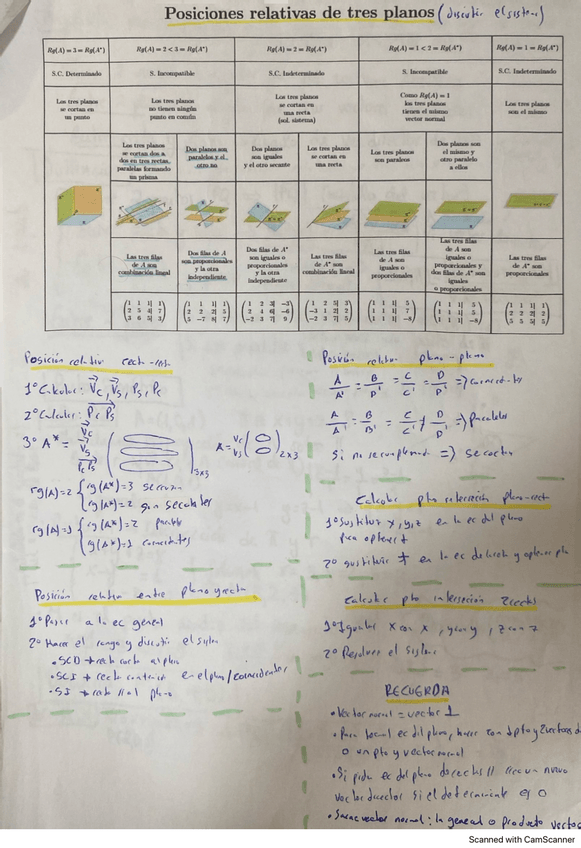 Posiciones relativas de tres planos (discutir el sistema)
Rg(A) = 3 = Rg(A*)
Rg(A) = 2 < 3 = Rg(A*)
Rg(A) = 2 = Rg(A*)
Rg(A) = 1 < 2 = Rg(A*)
Rg(A) = 1 = Rg(A*)
S.C. Determinado
S. Incompatible
S.C. Indeterminado
S. Incompatible
S.C. Indeterminado
Los tres planos
se cortan en
un punto
Los tres planos
no tienen ningún
punto en común
Los tres planos
se cortan en
una recta
(sol. sistema)
Como Rg(A) = 1
los tres planos
tienen el mismo
vector normal
Los tres planos
son el mismo
Los tres planos
se cortan dos a
dos en tres rectas
paralelas formando
un prisma
Dos planos son
paralelos y el
otro no
Dos planos
son iguales
y el otro secante
Los tres planos
se cortan en
una recta
Los tres planos
son paralelos
Dos planos son
el mismo y
otro paralelo
a ellos
Las tres filas
de A son
combinación lineal
Dos filas de A
son proporcionales
y la otra
independiente
Dos filas de A*
son iguales o
proporcionales
y la otra
independiente
Las tres filas
de A* son
combinación lineal
Las tres filas
de A son
iguales o
proporcionales
Las tres filas
de A son
iguales o
proporcionales y
dos filas de A* son
iguales
o proporcionales
Las tres filas
de A* son
proporcionales
1 1 1| 1
2 5 4| 7
3 6 5| 3
1 1 1| 1
2 2 2| 5
5 -7 8| 7
1 2 3| -3
2 4 6| -6
-2 3 7| 9
1 2 5| 3
-3 1 2| 2
-2 3 7| 5
1 1 1| 5
1 1 1| 7
1 1 1| -8
1 1 1| 5
1 1 1| 5
1 1 1| -8
1 1 1| 1
2 2 2| 2
5 5 5| 5
Posición relativa recta-recta
1º Calcular: Vr, Vs, Ps, Pr
2º Calcular: Pr Ps
3º A* = Vr
Vs
Pr Ps
3x3
A = Vr
Vs
2x3
rg(A)=2 { rg(A*)=3 se cruzan
rg(A*)=2 son secantes
rg(A)=1 { rg(A*)=2 paralelas
rg(A*)=1 coincidentes
Posición relativa plano-plano
A/A' = B/B' = C/C' = D/D' => coincidentes
A/A' = B/B' = C/C' ≠ D/D' => Paralelos
Si no se cumple nada => se cortan
Calcular pto intersección plano-recta
1º Sustituir x, y, z en la ec del plano
para obtener t
2º sustituir t en la ec de la recta y obtener pto
Posición relativa entre plano y recta
1º Pasar a la ec general
2º Hacer el rango y discutir el sistema
• SCD → recta corta al plano
• SCI → recta contenida en el plano/coincidentes
• SI → recta // al plano
Calcular pto intersección 2 rectas
1º Igualar x con x, y con y, z con z
2º Resolver el sistema
RECUERDA
• Vector normal = vector ⊥
• Para hacer la ec del plano, hacer con 1 pto y 2 vectores d
o un pto y vector normal
• Si piden ec del plano de rectas // crea un nuevo
vector director si el determinante es 0
• Sacar vector normal: la general o producto vector
Scanned with CamScanner